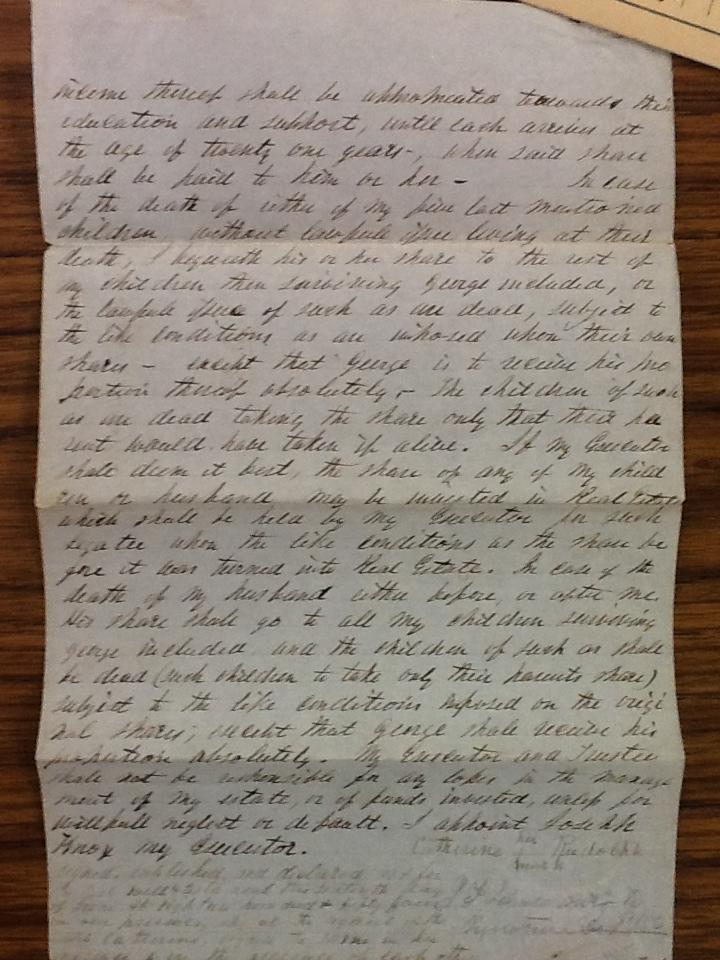 income thereof shall be appropriated towards their
education and support, until each arrives at
the age of twenty one years -, when said share
shall be paid to him or her - In case
of the death of either of my five last mentioned
children, without lawfull issue living at their
death, I bequeath his or her share to the rest of
my children then surviving George included, or
the lawfull issue of such as are dead, subject to
the like conditions as are imposed upon their own
shares - except that George is to receive his pro
portion thereof absolutely, - The children of such
as are dead taking the share only that their pa
rent would have taken if alive. If my Executor
shall deem it best, the share of any of my child
ren or husband may be invested in Real Estate
which shall be held by my Executor for such
legatee upon the like conditions as the share be
fore it was turned into Real Estate. In case of the
death of my husband either before, or after me
his share shall go to all my children surviving
George included and the children of such as shall
be dead (such children to take only their parents share)
subject to the like conditions imposed on the origi
nal shares; except that George shall receive his
proportion absolutely. My Executor and Trustee
shall not be responsible for any losses in the manage
ment of my estate, or of funds invested, unless for
willfull neglect or default. I appoint Joseph
Knox my Executor. Catherine her Rudolph
mark
signed, published and declared as for